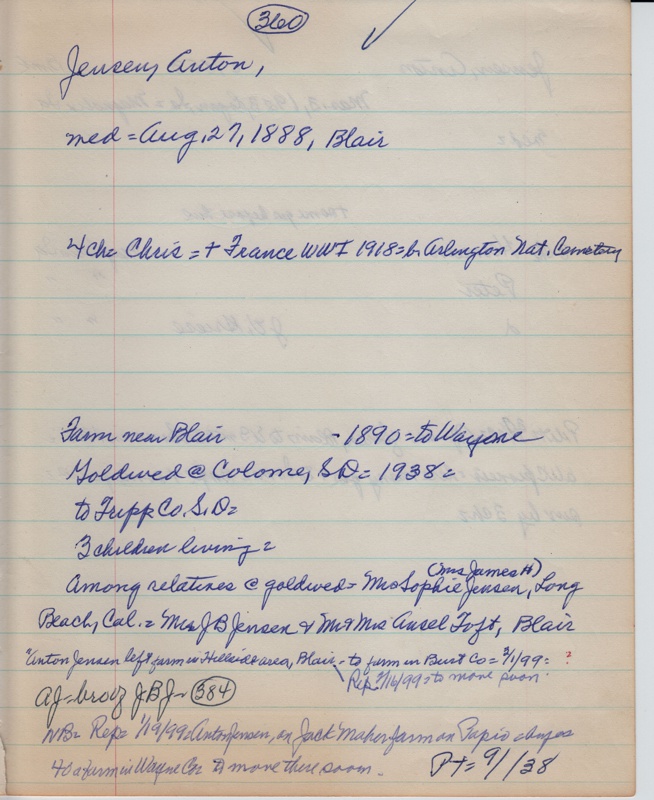 360
Jensen, Anton,
med = Aug, 27, 1888, Blair
4 ch = Chris = + France WWI 1918 = b. Arlington Nat. Cemetery
Farm near Blair - 1890 = to Wayne
Goldwed @ Colome, S.D. = 1938 =
to Tripp Co. S.D =
3 children living =
(Mrs James H)
Among relatives @ goldwed = Mrs Sophie Jensen, Long
Beach, Cal. = Mrs J B Jensen & Mr & Mrs Ansel Toft, Blair
"Anton Jensen left farm in Hillside area, Blair - to farm in Burt Co = 3/1/99 = ?
Rep. 2/16/99 = to move soon.
AJ = bro of J B J = 384
NB = Rep = 1/19/99 = Anton Jensen, on Jack Maher farm on Papio
40 a farm in Wayne Co = to move there soon.
Pt = 9/ /38